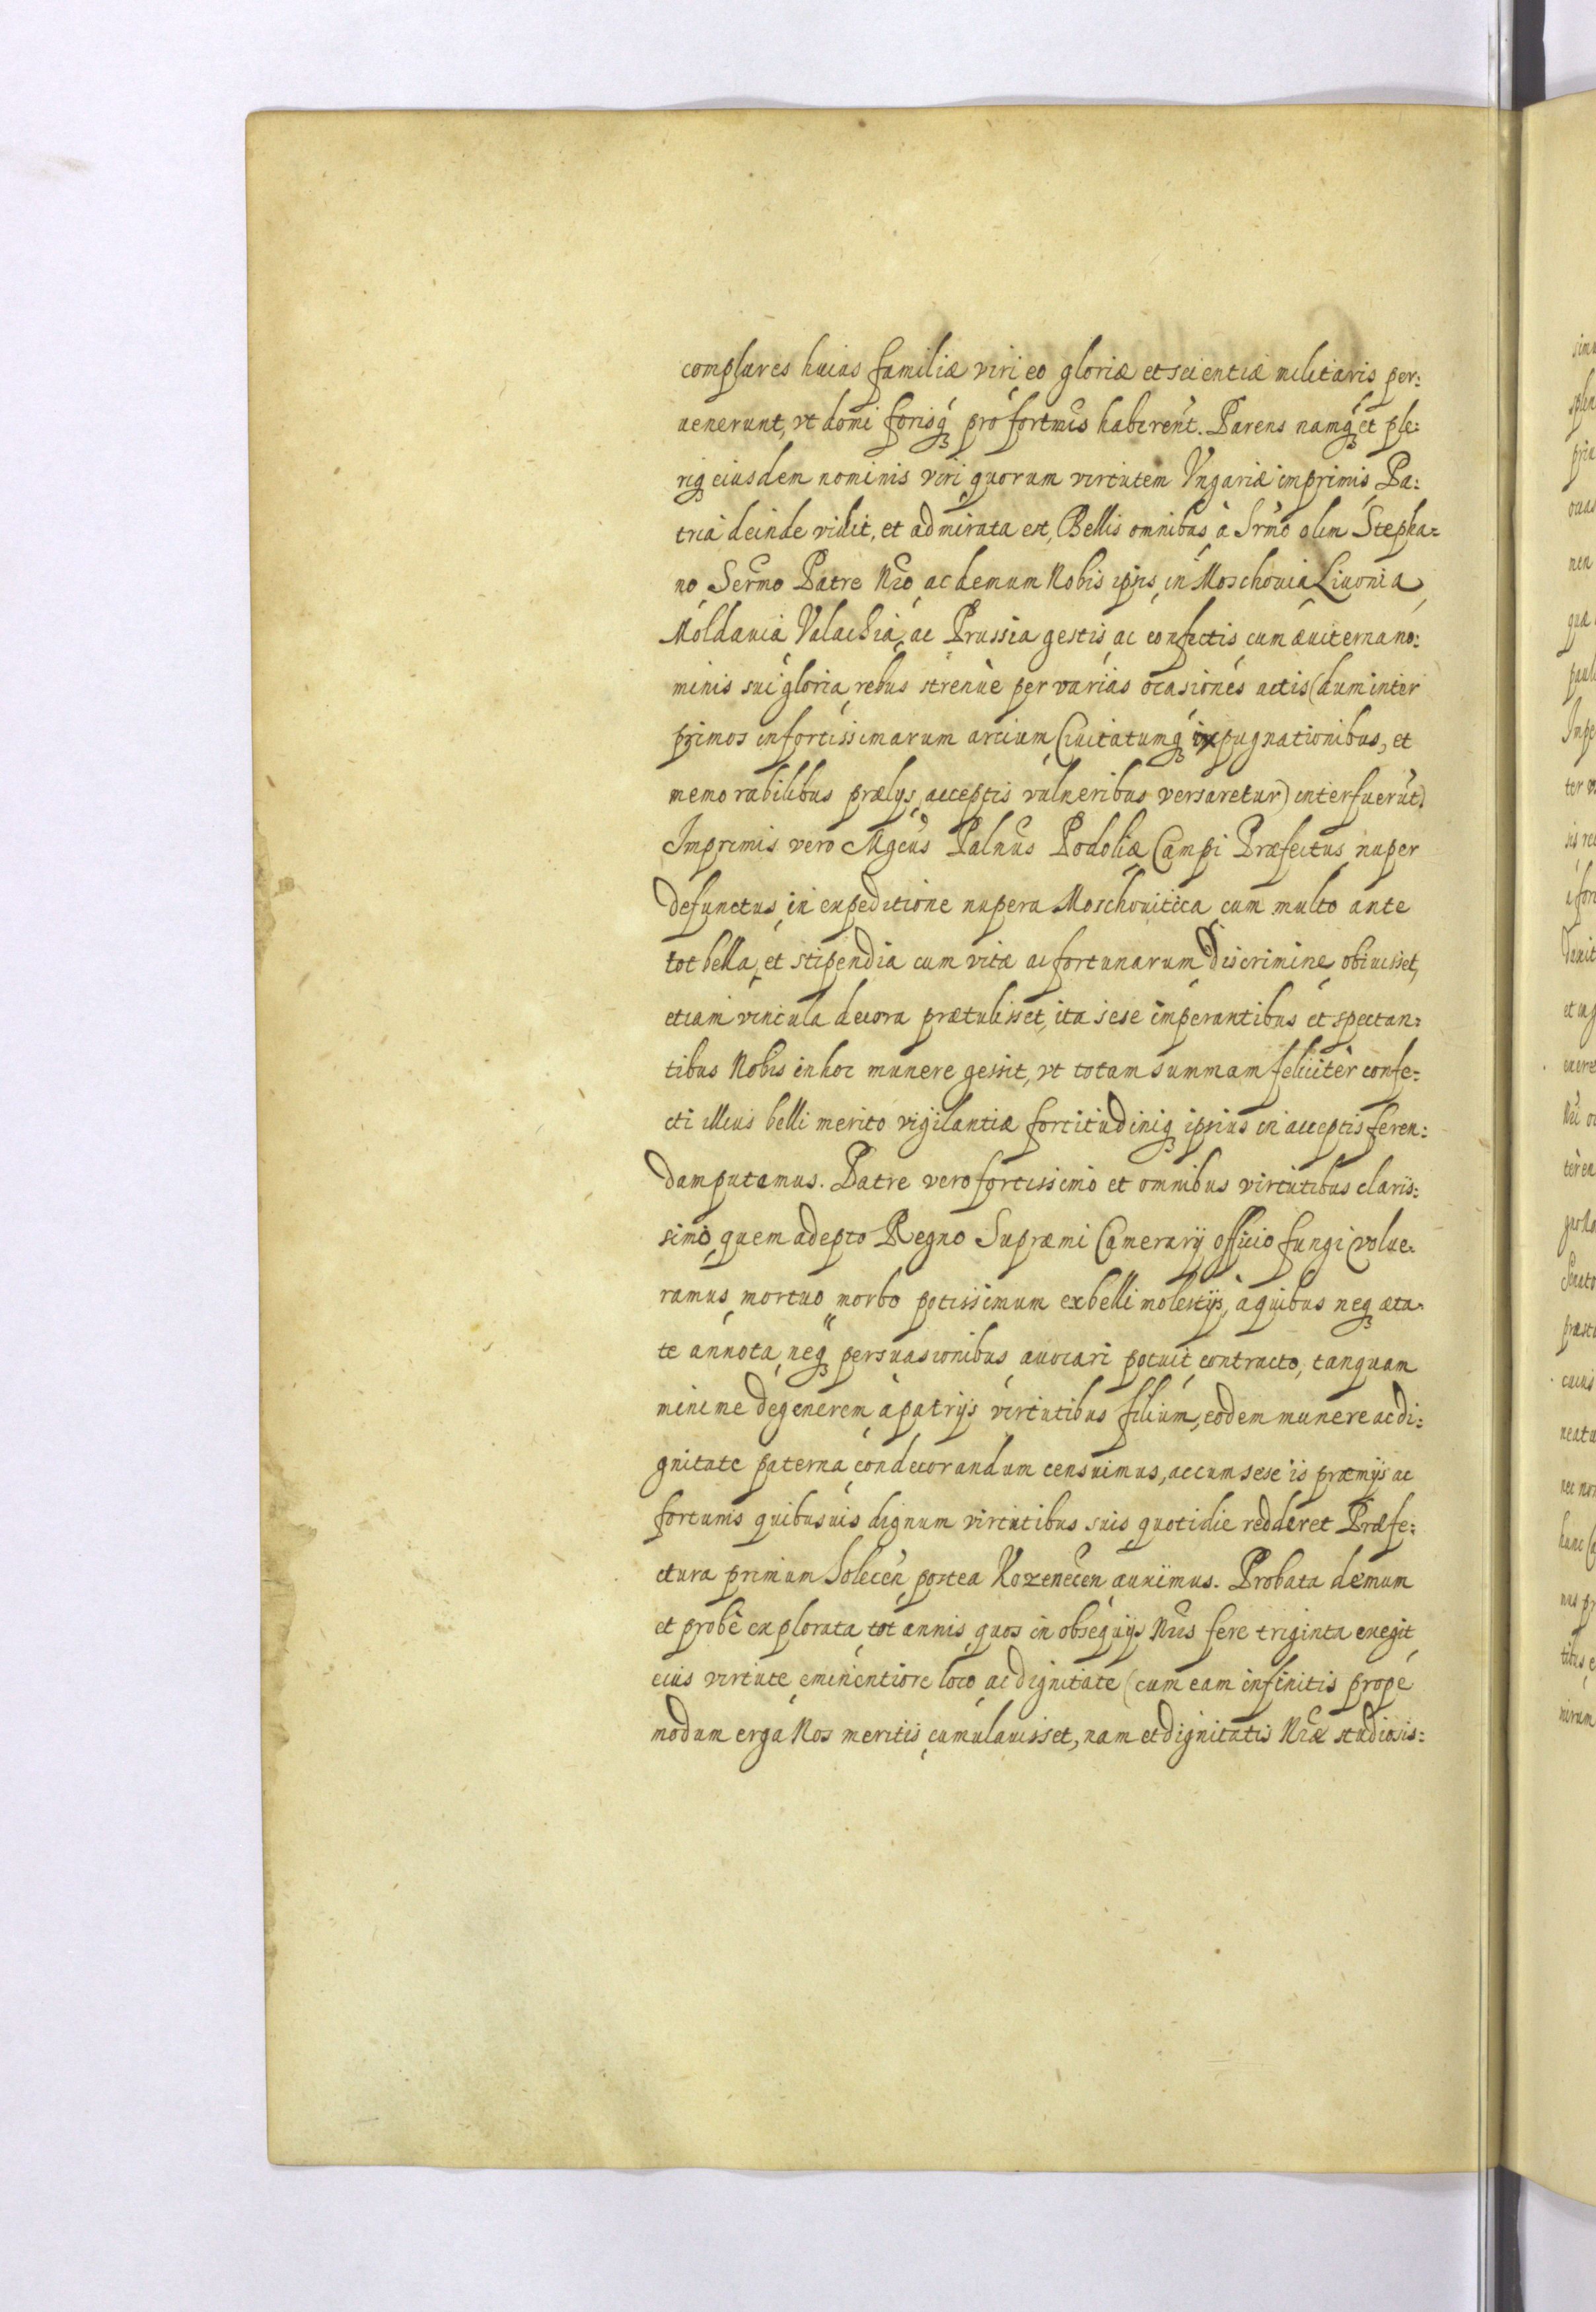 complures huius familiæ viri eo gloriæ et scientiæ militaris per:
uenerunt, vt domi forisq́ꝫ pro fortibus haberent. Parens namq́ꝫ et ple:
riqꝫ eiusdem nominis viri, quorum virtutem Vngariæ imprimis, Pa:
tria deinde vidit, et admirata est, Bellis omnibus à Srmo olim Stepha:
no, Sermo Patre Nro, ac demum Nobis ipsis, in Moschouia Liuonia,
Moldauia, Valachia, ac Prussia gestis, ac confectis, cum æuiterna no:
minis sui gloria, rebus strenuè per varias ocasiones actis (dum inter
primos in fortissimarum arcium, Ciuitatumq́ꝫ expugnationibus, et
memorabilibus prælys, acceptis vulneribus versaretur) interfuerūt.
Imprimis vero Mgcus Palnus Podoliæ Campi Præfectus nuper
defunctus, in expeditione nupera Moschouitica, cum multo ante
tot bella, et stipendia cum vitæ ac fortunarum discrimine obiuisset,
etiam vincula decora prætulisset, ita sese imperantibus et spectan:
tibus Nobis in hoc munere gessit, vt totam summam feliciter confe:
cti illius belli merito vigilantiæ fortitudiniqꝫ ipsius in acceptis feren:
dam putamus. Patre vero fortissimo et omnibus virtutibus claris:
simo, quem adepto Regno Supræmi Camerarÿ officio fungi volue:
ramus, mortuo, morbo potissimum ex belli molestÿs, à quibus neqꝫ æta:
te annota, neqꝫ persuasionibus, auocari potuit, contracto, tanquam
minime degenerem, à patrÿs virtutibus filium, eodem munere ac di:
gnitate paterna, condecorandum censuimus, ac cum sese is præmÿs ac
fortunis quibusuis dignum virtutibus suis, quotidie redderet Præfe:
ctura primum Solecen, postea Kozenecen, auximus. Probata demum
et probè explorata, tot annis, quos in obsequÿs Nris fere triginta exegit
eius virtute, eminentiore loco, ac dignitate (cum eam infinitis propè
modum erga Nos meritis, cumulauisset, nam et dignitatis Nræ studiosis: